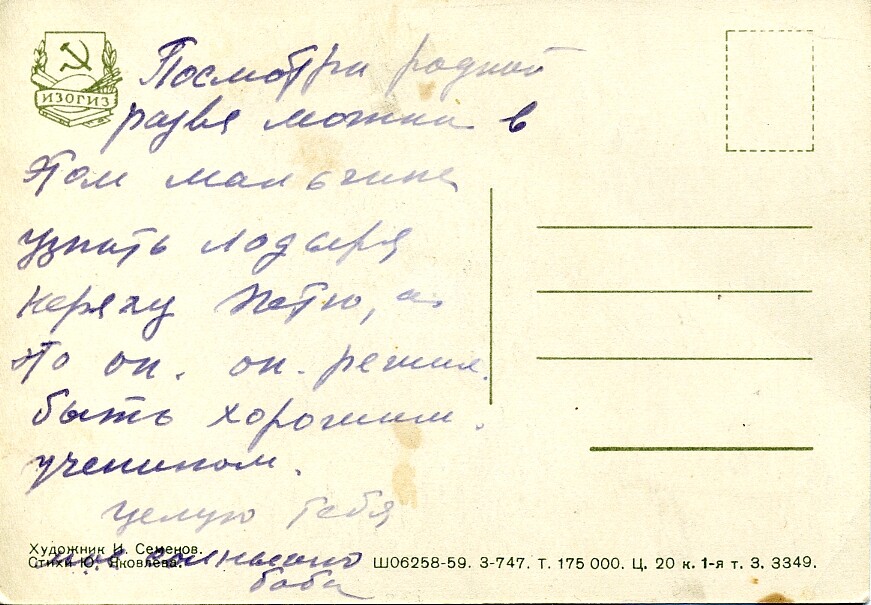 ИЗОГИЗ
Посмотри родной
разве можна в
этом мальчике
узнать лодыря
неряху Петю, а
это он. он. решил.
быть хорошим.
учеником.
целую тебя
мое солнышко
баба
Художник И. Семенов.
Стихи Ю. Яковлева.
Ш06258-59. З-747. Т. 175 000. Ц. 20 к. 1-я т. З. 3349.